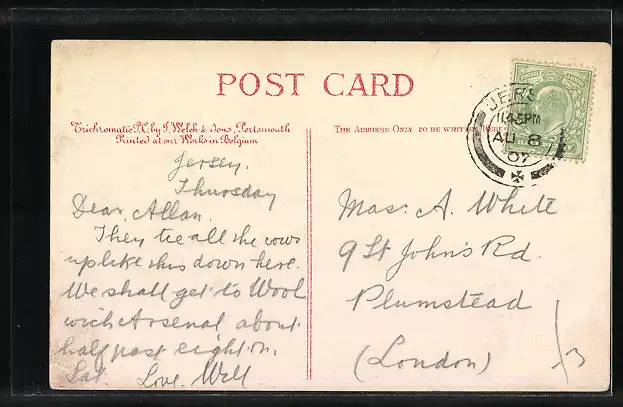 POST CARD
Trichromatic P.C. by J. Welch & Sons, Portsmouth
Printed at our Works in Belgium
THE ADDRESS ONLY TO BE WRITTEN HERE
JERS
11.45PM
AU 8
07
Jersey.
Thursday
Dear Allan.
They tie all the cows
up like this down here.
We shall get to Wool
wich Arsenal about
half past eight on.
Sat. Love. Will
Mas. A. White
9 St John's Rd.
Plumstead
(London)